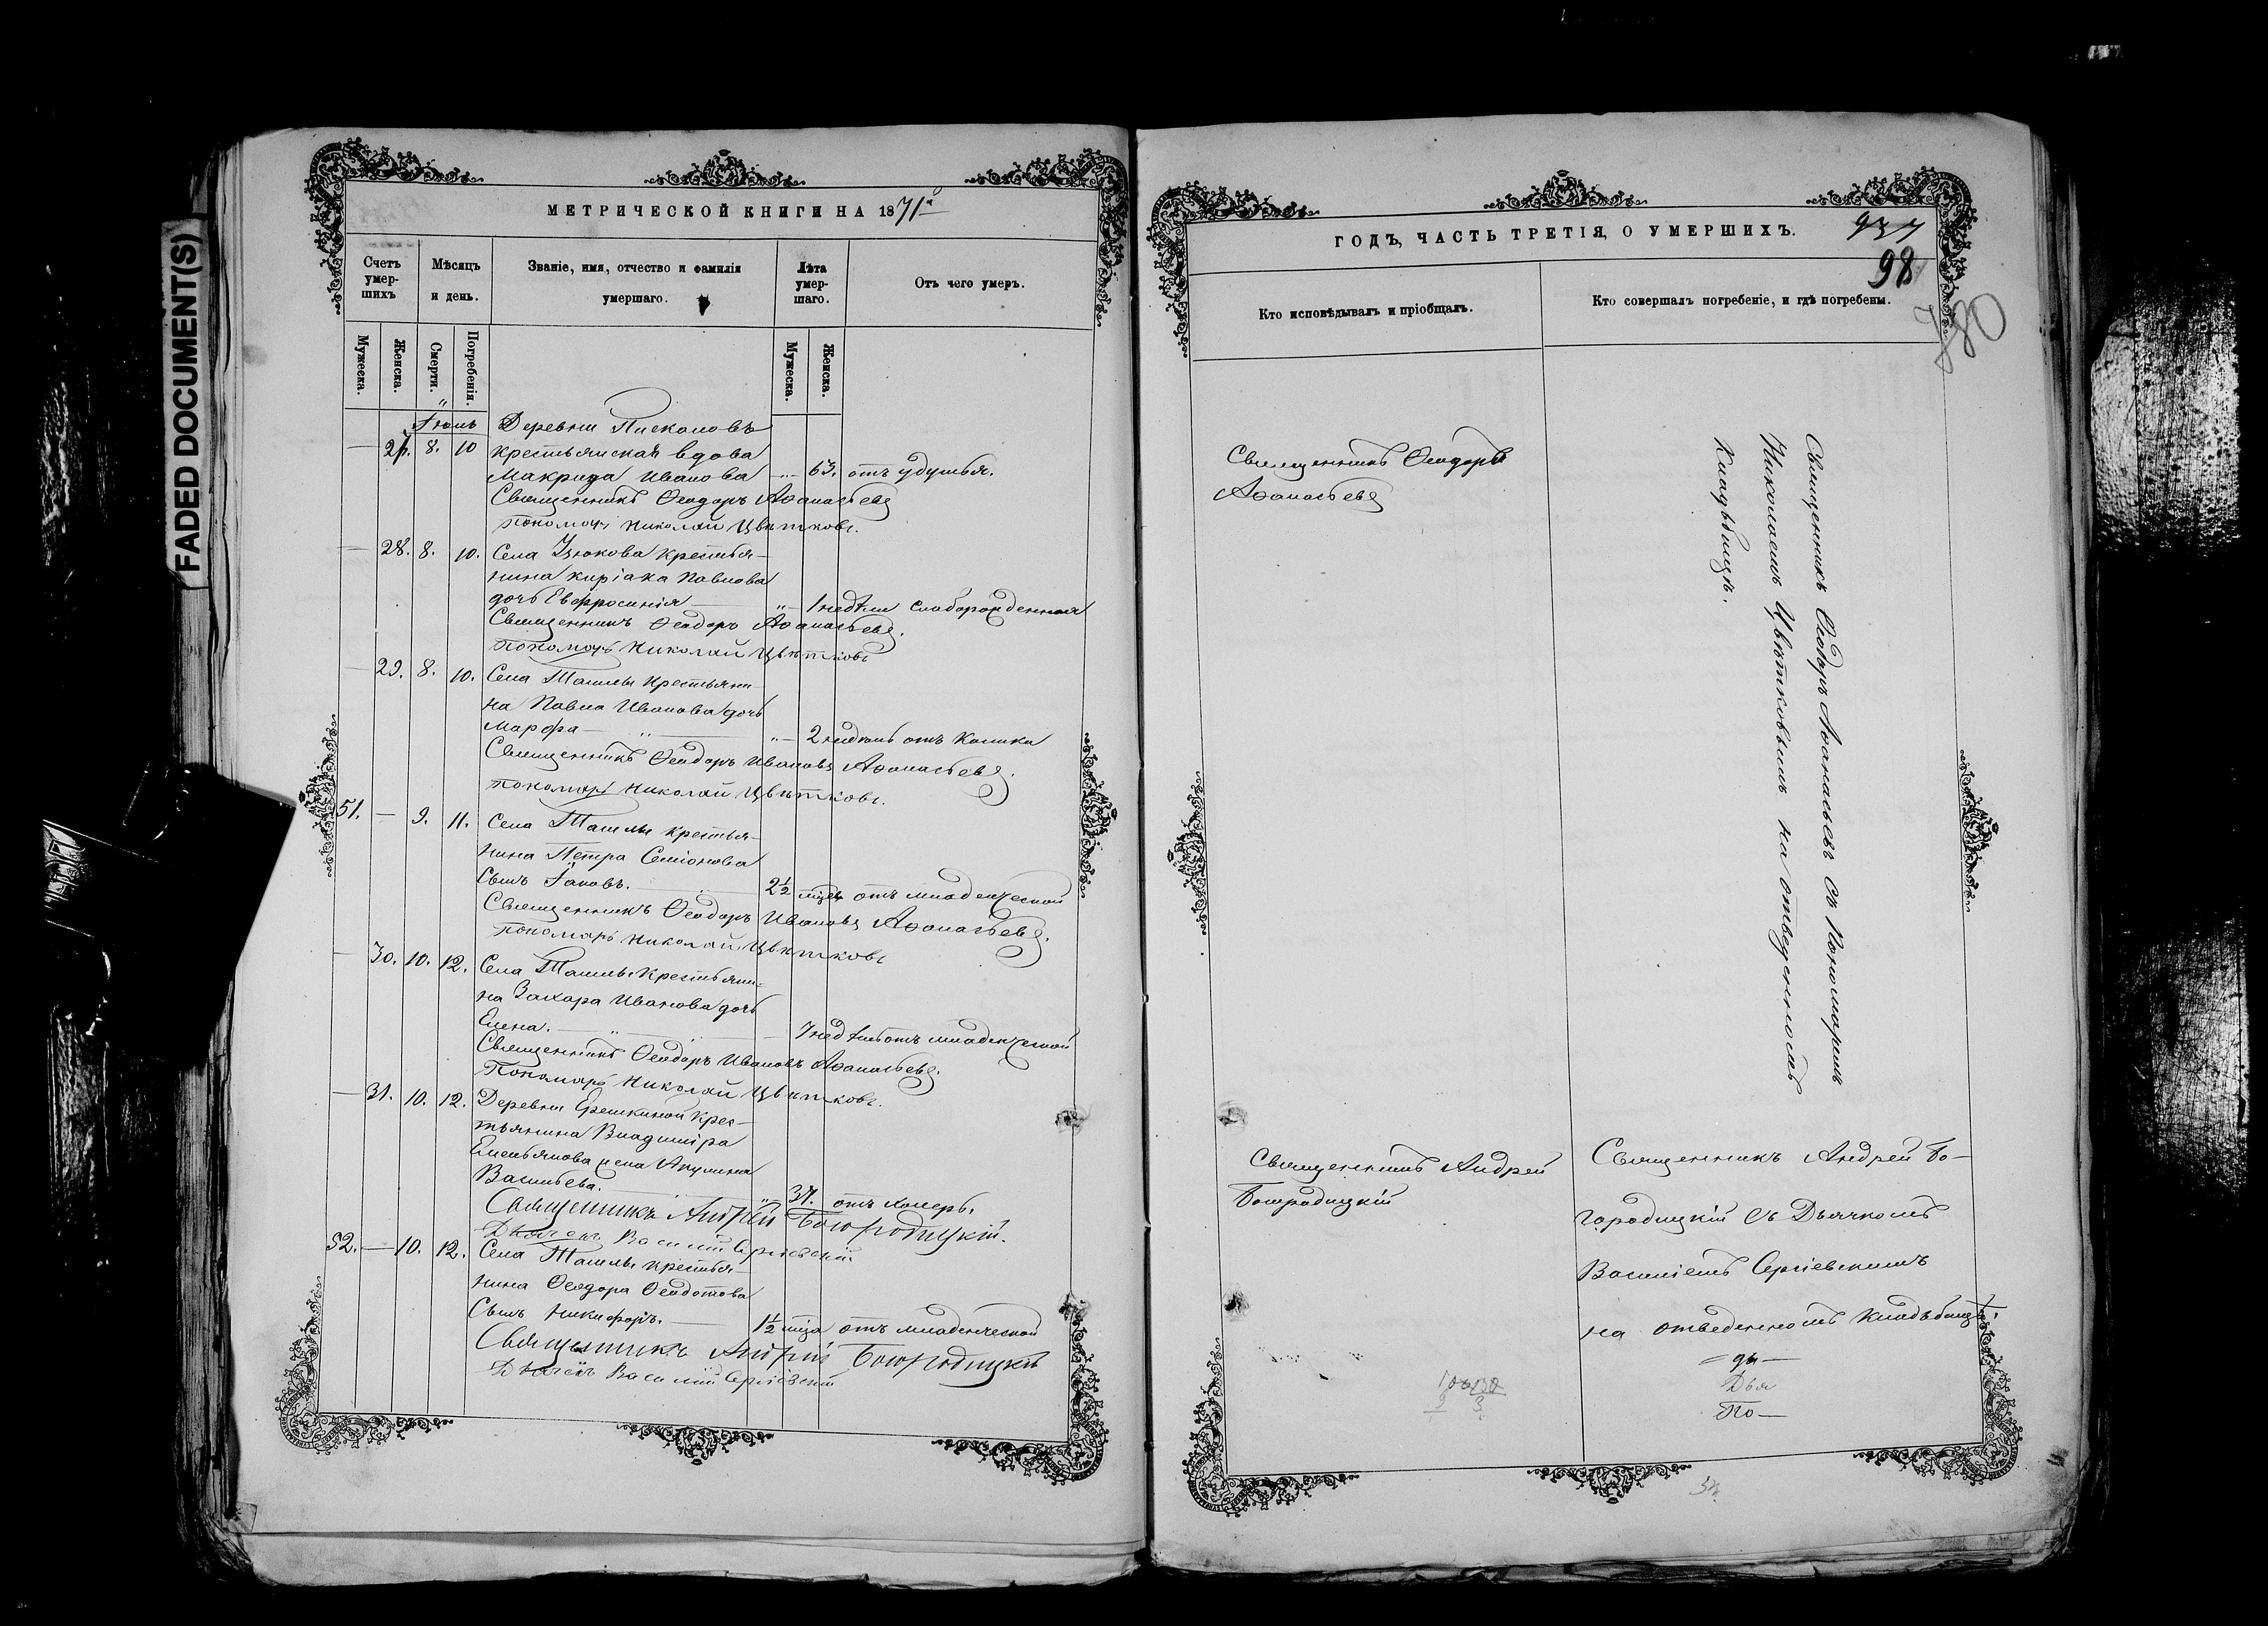 FADED DOCUMENT(S)
МЕТРИЧЕСКОЙ КНИГИ НА 1871й
Счетъ умер-шихъ
Мѣсяцъ и день.
Званіе, имя, отчество и фамилія умершаго.
Лѣта умер-шаго.
Отъ чего умеръ.
Мужеска.
Женска.
Смерти.
Погребенія.
Мужеска.
Женска.
Деревни
27. 8. 10 крестьянская вдова
Макрида Иванова „ — 63. отъ удушья.
Священникъ Ѳеодоръ Аѳанасьевъ
пономарь Николай Цвѣтковъ.
— 28. 8. 10. Села Крестья-
нина Киріака Павлова
дочь Евфросинія — „ — 1 недѣли слаборожденная
Священникъ Ѳеодоръ Аѳанасьевъ.
Пономарь Николай Цвѣтковъ
— 29. 8. 10. Села Ташлы Крестьяни-
на Павла Иванова дочь
Марфа — „ — „ — 2 недѣль отъ колики
Священникъ Ѳеодоръ Ивановъ Аѳанасьевъ.
пономарь Николай Цвѣтковъ.
51. — 9. 11. Села Ташлы крестья-
нина Петра Семіонова
сынъ Іаковъ. — 2½ отъ младенческой
Священникъ Ѳеодоръ Ивановъ Аѳанасьевъ.
пономарь Николай Цвѣтковъ
— 30. 10. 12. Села Ташлы Крестьяни-
на Захара Иванова дочь
Елена. — „ — 7 недѣль отъ младенческой
Священникъ Ѳеодоръ Ивановъ Аѳанасьевъ.
Пономарь Николай Цвѣтковъ.
— 31. 10. 12. Деревни Ерешкиной крес-
тьянина Владиміра
Емельянова жена Акулина
Васильева. — „ 37. отъ холеры.
Священникъ Андрей Богородицкій.
Дьячекъ Василій Сергіевскій
52. — 10. 12. Села Ташлы крестья-
нина Ѳеодора Ѳеодотова
сынъ Никифоръ. — 1½ мца отъ младенческой
Священникъ Андрей Богородицкій
Дьячекъ Василій Сергіевскій
ГОДЪ, ЧАСТЬ ТРЕТІЯ, О УМЕРШИХЪ.
98
Кто исповѣдывалъ и пріобщалъ.
Кто совершалъ погребеніе, и гдѣ погребены.
Священникъ Ѳеодоръ
Аѳанасьевъ
Священникъ Ѳеодоръ Аѳанасьевъ съ Пономаремъ
Николаемъ Цвѣтковымъ на отведенномъ
Кладбищѣ.
Священникъ Андрей
Богородицкій
Священникъ Андрей Бо-
городицкій съ Дьячкомъ
Василіемъ Сергіевскимъ
на отведенномъ кладбищѣ.